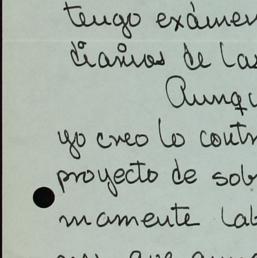 tengo exámen
diarios de las
Aunqu
yo creo lo contr
proyecto de sob
mamente lab